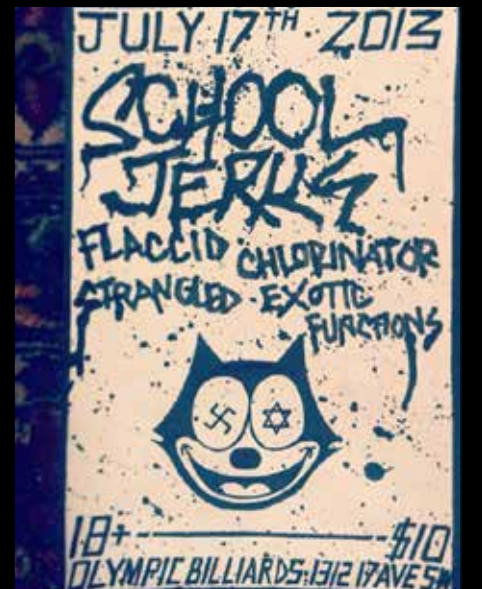 JULY 17TH 2013
SCHOOL
JERKS
FLACCID CHLORINATOR
STRANGLED - EXOTIC
FUNCTIONS
18+ $10
OLYMPIC BILLIARDS: 1312 17 AVE SW